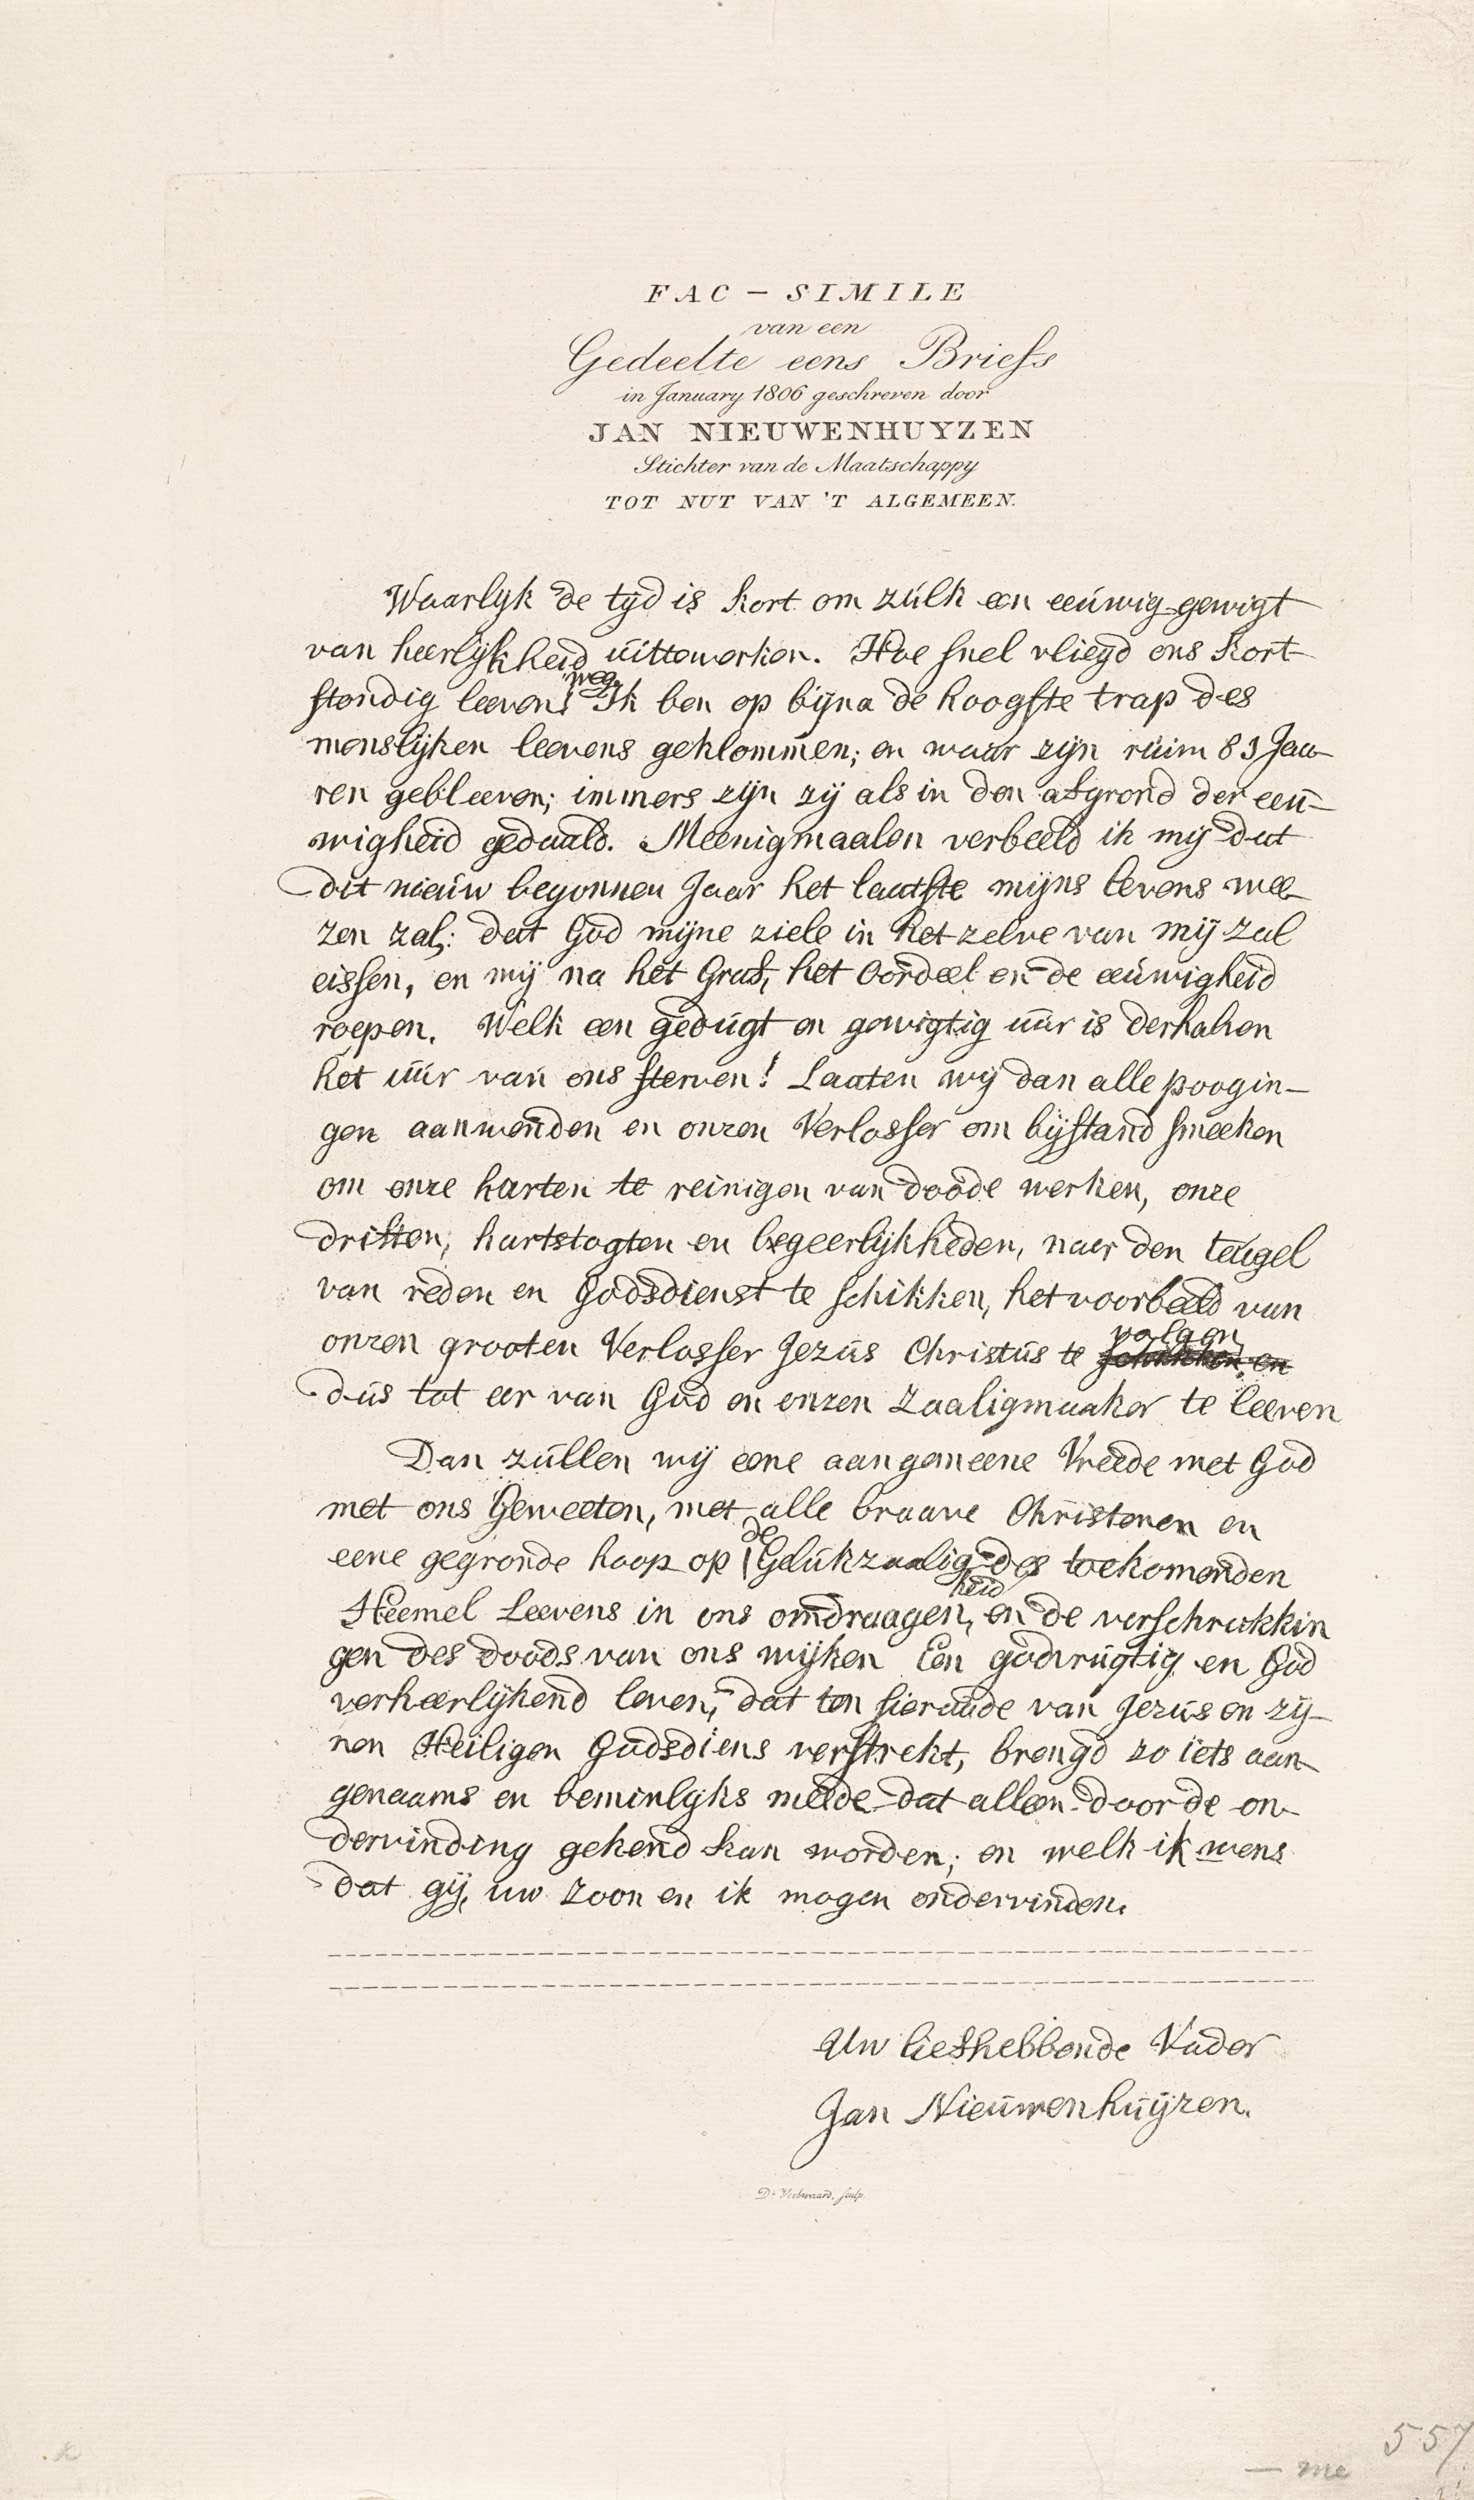 FAC-SIMILE
van een
Gedeelte eens Briefs
in January 1806 geschreven door
JAN NIEUWENHUYZEN
Stichter van de Maatschappy
TOT NUT VAN 'T ALGEMEEN.
Waarlyk de tyd is kort om zúlk een eeúwig gewigt
van heerlijkheid uittewerken. Hoe snel vliegd ons kort-
stondig leeven weg! Ik ben op bijna de hoogste trap des
menslijken leevens geklommen; en waar zijn rúim 83 Jaa-
ren gebleeven; immers zijn zij als in den afgrond der eeu-
wigheid gedaald. Meenigmaalen verbeeld ik mij dat
dit nieuw begonnen Jaar het laatste mijns levens wee-
zen zal; dat God mijne ziele in het zelve van mij zal
eissen, en mij na het Graf, het Oordeel en de eeúwigheid
roepen. Welk een gedúgt en gewigtig uur is derhalven
het uur van ons sterven! Laaten wij dan alle poogin-
gen aanwenden en onzen Verlosser om bijstand smeeken
om onze harten te reinigen van doode werken, onze
driften, hartstogten en begeerlijkheden, naer den teugel
van reden en Godsdienst te schikken, het voorbeeld van
onzen grooten Verlosser Jezus Christus te volgen en
dus tot eer van God en onzen Zaaligmaaker te leeven
Dan zullen wij eene aangemeene Vreede met God
met ons Geweeten, met alle braave Christenen en
eene gegronde hoop op de Gelukzaaligheid des toekomenden
Heemel Leevens in ons omdraagen, en de verschrikkin
gen des doods van ons wijken Een godvrugtig en God
verheerlijkend leven, dat ten sieraade van Jezus en zij-
nen Heiligen Godsdiens verstrekt, brengd zo iets aan-
genaams en beminlyks meede dat alleen door de on-
dervinding gekend kan worden; en welk ik wens
dat gij, uw Zoon en ik mogen ondervinden.
Uw liefhebbende Vader
Jan Nieuwenhuijzen.
D. Veelwaard, sculp.
557
me